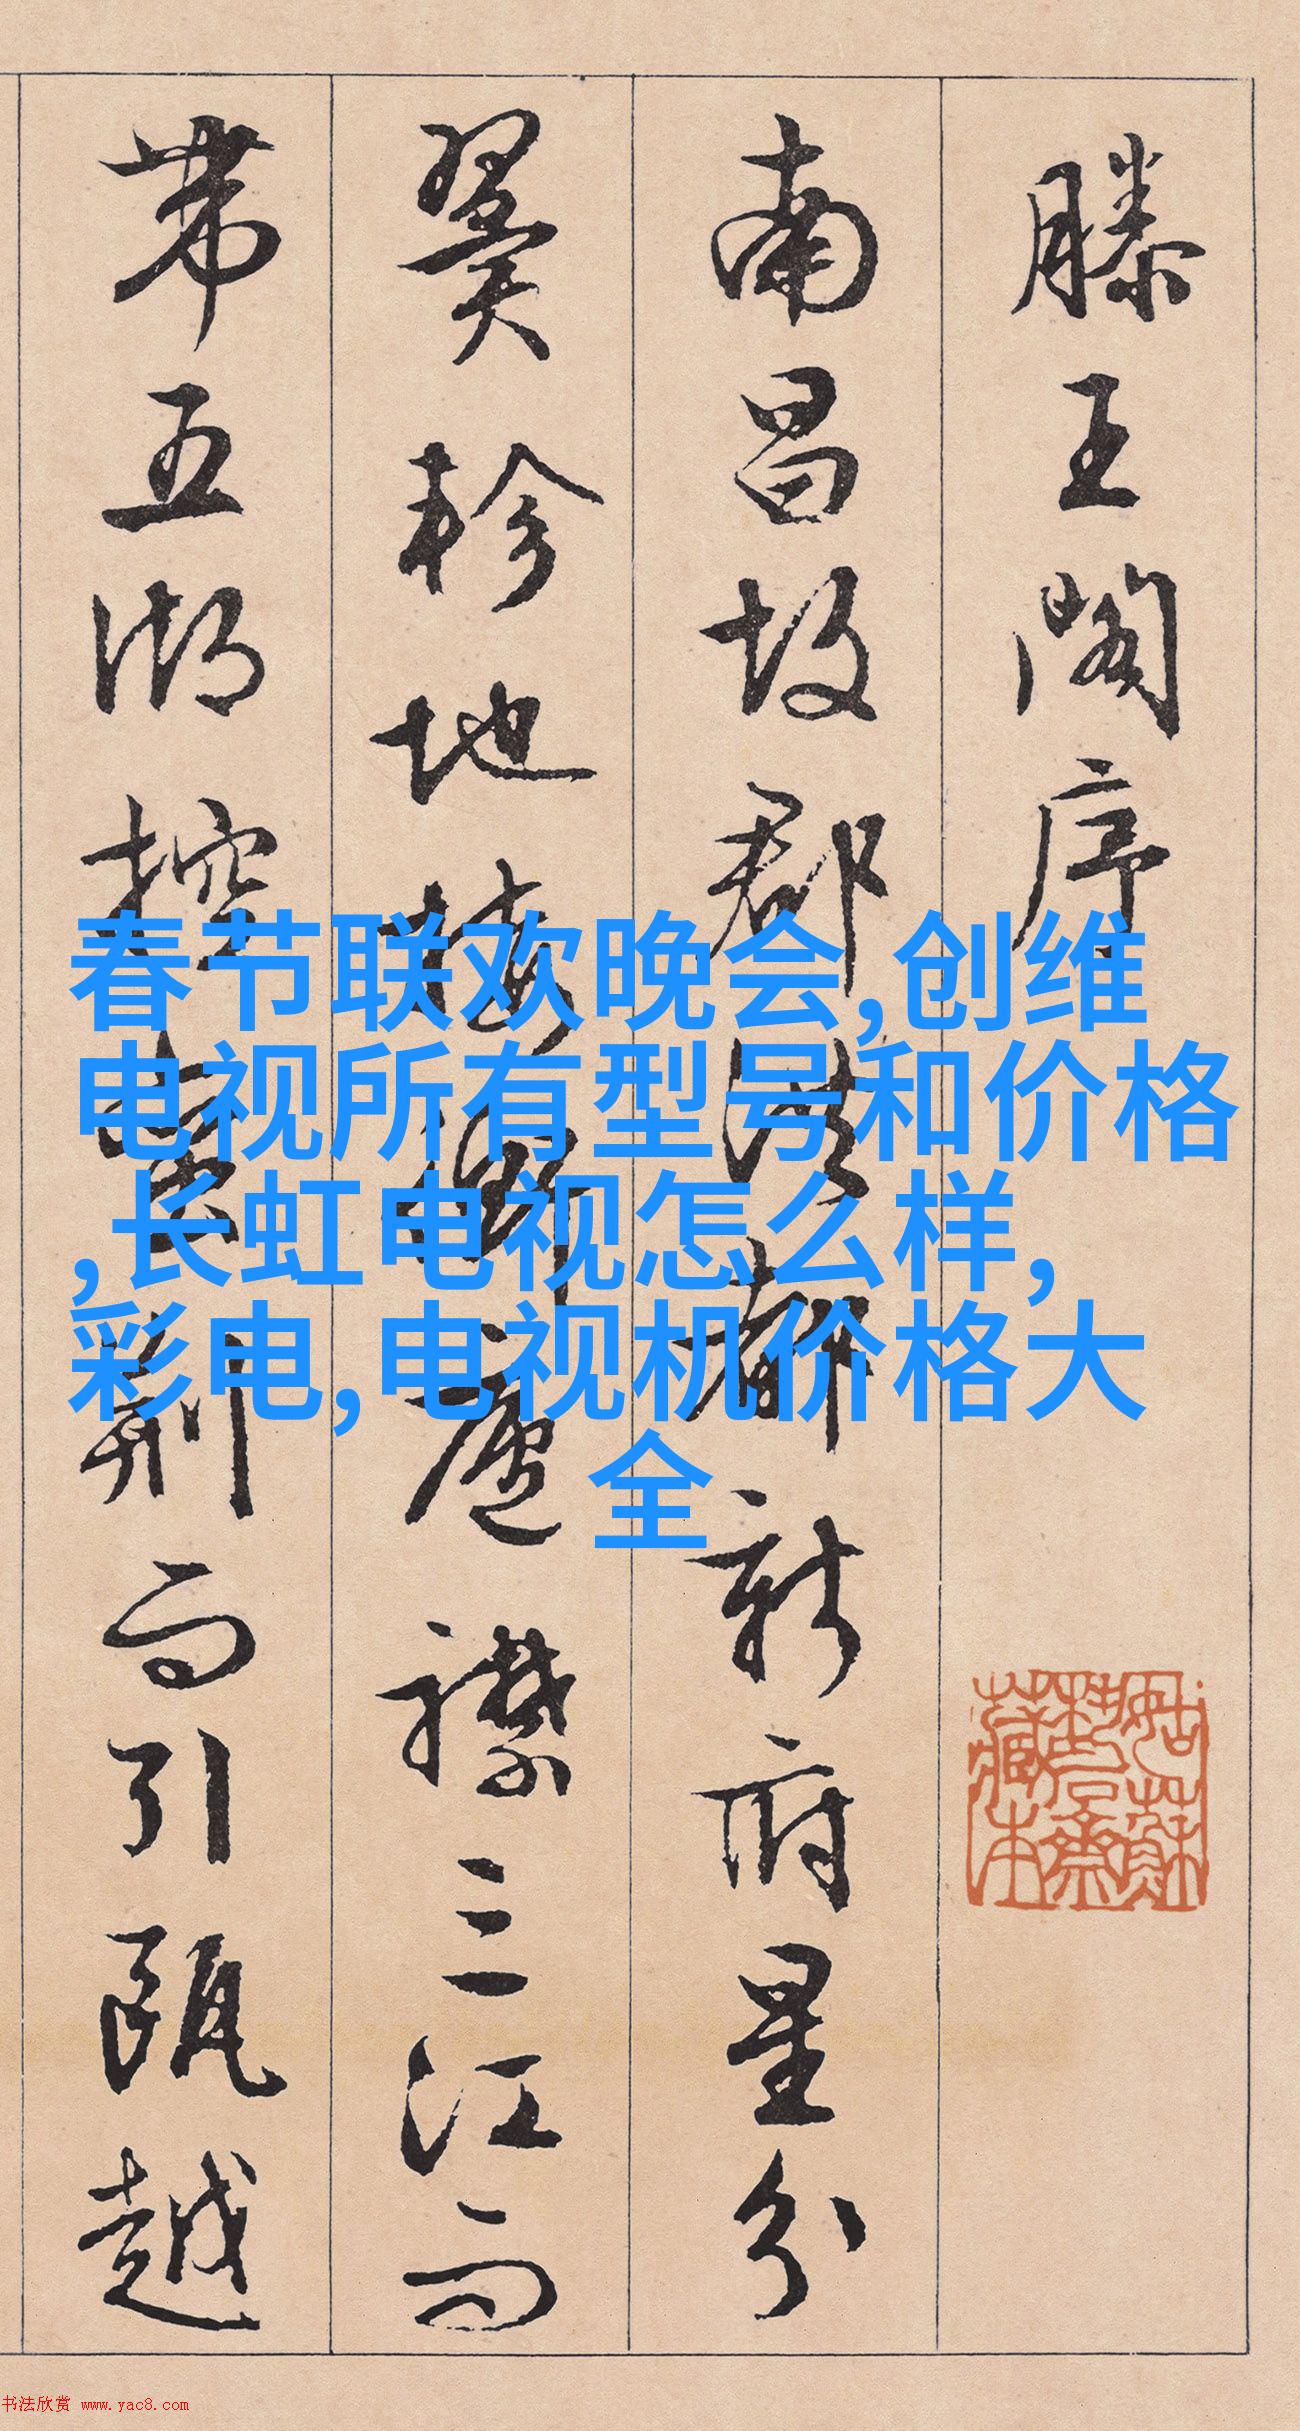 滕王閣序
南昌故郡洪都新府星分
翼軫地接衡廬襟三江而
帶五湖控蠻荊而引甌越
春节联欢晚会,创维
电视所有型号和价格
,长虹电视怎么样,
彩电,电视机价格大
全
姑蘇
藏本
书法欣赏 www.yac8.com